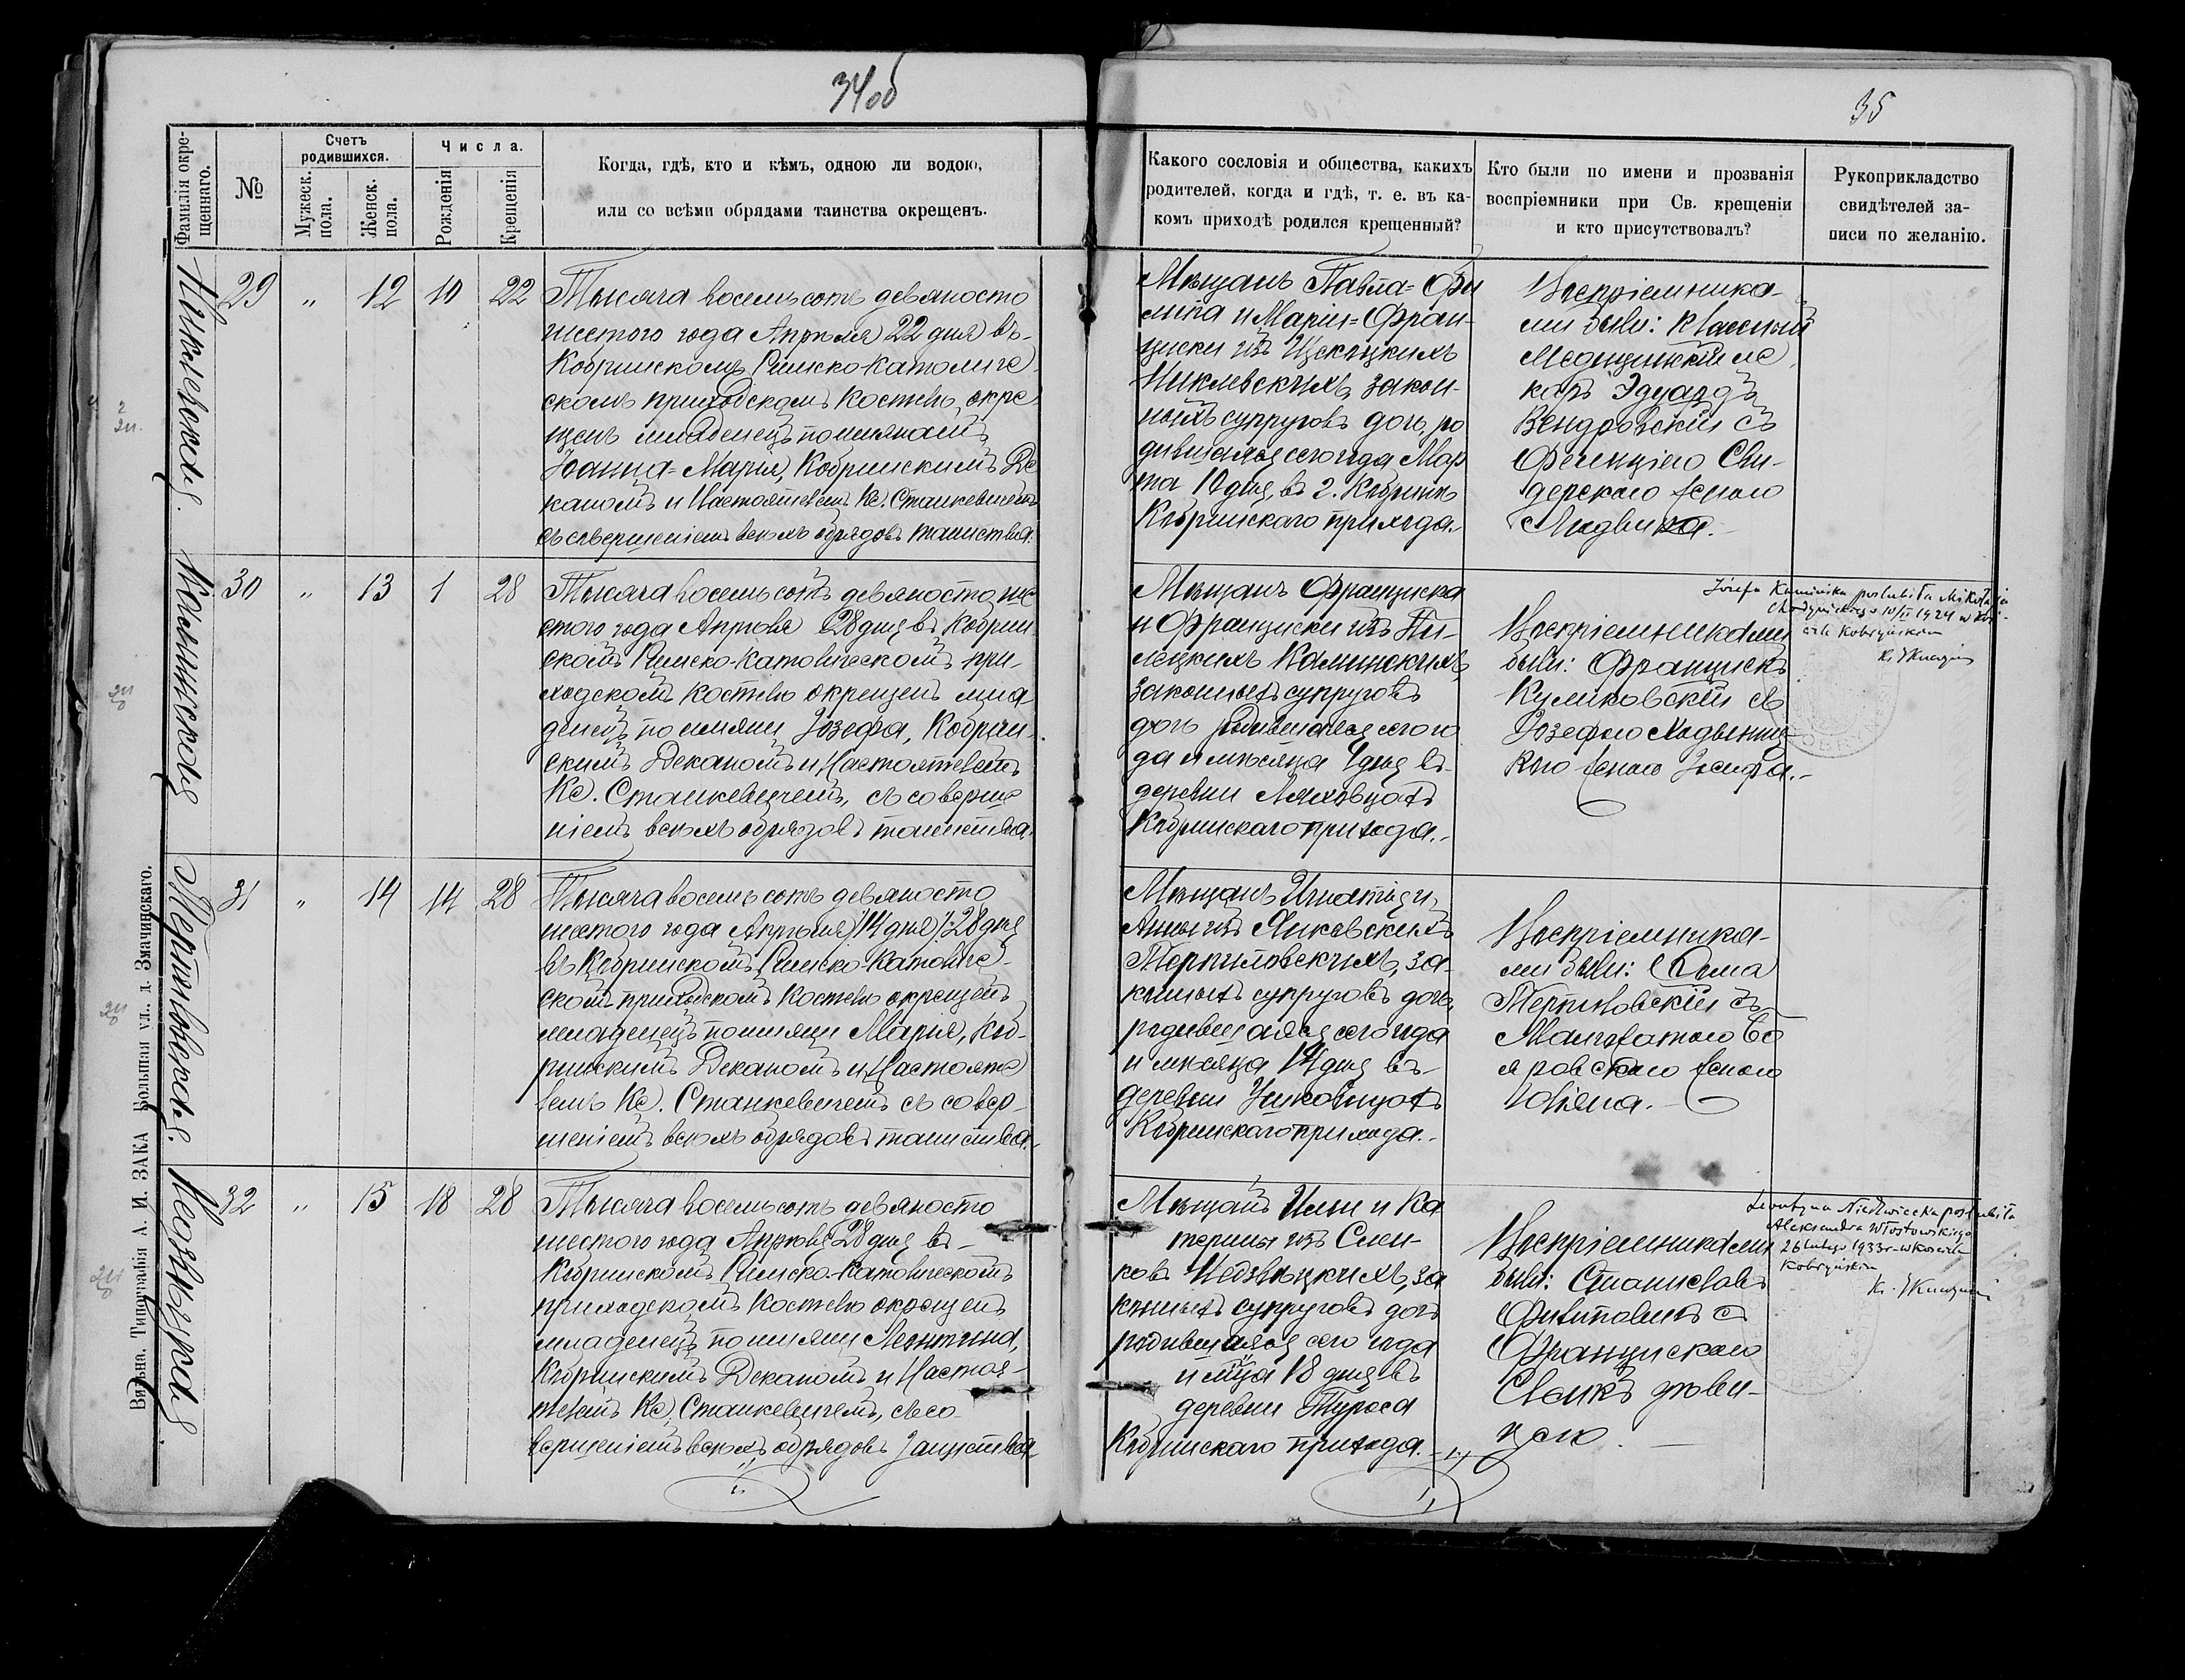 34об
35
Фамилія окре-
щеннаго.
№
Счетъ
родившихся.
Мужеск.
пола.
Женск.
пола.
Числа.
Рожденія
Крещенія
Когда, гдѣ, кто и кѣмъ, одною ли водою,
или со всѣми обрядами таинства окрещенъ.
Какого сословія и общества, какихъ
родителей, когда и гдѣ, т. е. въ ка-
комъ приходѣ родился крещенный?
Кто были по имени и прозванія
воспріемники при Св. крещеніи
и кто присутствовалъ?
Рукоприкладство
свидѣтелей за-
писи по желанію.
Никлевская.
29 " 12 10 22
Тысяча восемьсотъ девяносто
шестого года Апрѣля 22 дня въ
Кобринскомъ Римско-Католиче-
скомъ приходскомъ костелѣ окре
щенъ младенецъ по имянамъ
Іоанна=Марія, Кобринскимъ Де
каномъ и Настоятелемъ Кс. Станкевичемъ
съ совершеніемъ всѣхъ обрядовъ таинства.
Мѣщанъ Павла=Фи
липа и Маріи=Фран-
циски изъ
Никлевскихъ, закон-
ныхъ супруговъ дочь, ро
дившаяся сего года Мар
та 10 дня въ г. Кобринѣ
Кобринскаго прихода.-
Воспріемника-
ми были: классный
Медицинскій ле
карь Эдуардъ
Вендровскій съ
Фелиціею Сви-
дерскою женою
Людвика.-
Каминская
30 " 13 1 28
Тысяча восемьсотъ девяносто ше
стого года Апрѣля 28 дня въ Кобрин
скомъ Римско-Католическомъ при-
ходскомъ костелѣ окрещенъ мла-
денецъ по имяни Іозефа, Кобрин-
скимъ Деканомъ и Настоятелемъ
Кс. Станкевичемъ, съ соверше
ніемъ всѣхъ обрядовъ таинства.
Мѣщанъ Франциска
и Франциски изъ
Каминскихъ
законныхъ супруговъ
дочь родившаяся сего го
да и мѣсяца 1 дня въ
деревни Ляховцахъ
Кобринскаго прихода.-
Воспріемниками
были: Францискъ
Куликовскій съ
Розефою
женою Іосифа.-
Józefa Kamińska poślubiła Mikołaja
Chodynickiego 10/II 1924 w koś-
ciele Kobryńskim
Терпиловская.
31 " 14 14 28
Тысяча восемьсотъ девяносто
шестого года Апрѣля (14 дня) 28 дня
въ Кобринскомъ Римско-Католиче-
скомъ приходскомъ костелѣ окрещенъ
младенецъ по имяни Марія, Коб-
ринскимъ Деканомъ и Настояте
лемъ Кс. Станкевичемъ съ совер-
шеніемъ всѣхъ обрядовъ таинства.-
Мѣщанъ Игнатія и
Анны изъ Янковскихъ
Терпиловскихъ, за-
конныхъ супруговъ дочь,
родившаяся сего года
и мѣсяца 14 дня въ
деревни
Кобринскаго прихода.-
Воспріемника-
ми были: Ѳома
Терпиловскій съ
Малгожатою Бо
яровскою женою
Юліяна.-
Недзвѣцкая
32 " 15 18 28
Тысяча восемьсотъ девяносто
шестого года Апрѣля 28 дня въ
Кобринскомъ Римско-Католическомъ
приходскомъ костелѣ окрещенъ
младенецъ по имяни Леонтина,
Кобринскимъ Деканомъ и Настоя-
телемъ Кс. Станкевичемъ, съ со-
вершеніемъ всѣхъ обрядовъ таинства
Мѣщанъ Ильи и Ка
терины изъ Слен-
ковъ Недзвѣцкихъ, за
конныхъ супруговъ дочь
родившаяся сего года
и мѣца 18 дня въ
деревни
Кобринскаго прихода.-
Воспріемниками
были: Станиславъ
съ
Францискою
дѣви-
цею.
Leontyna Niedźwiecka poślubiła
Aleksandra Włostowskiego
26 lutego 1933 r. w kościele
Kobryńskim
Вильна. Типографія А. И. ЗАКА Большая ул., д. Змачинскаго.